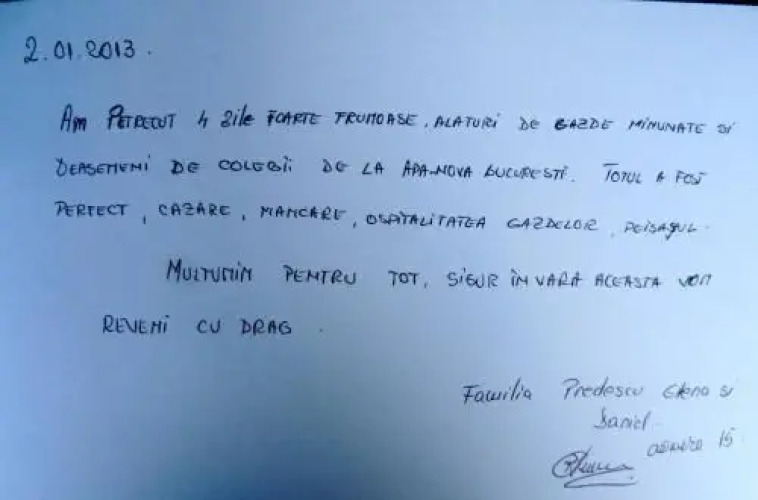 2.01.2013.
Am PETRECUT 4 zile FOARTE FRUMOASE, ALATURI DE GAZDE MINUNATE SI
DEASEMENI DE COLEGII DE LA APA-NOVA BUCURESTI. TOTUL A FOST
PERFECT, CAZARE, MANCARE, OSPITALITATEA GAZDELOR, PEISAJUL.
MULTUMIM PENTRU TOT, SIGUR ÎN VARA ACEASTA VOM
REVENI CU DRAG.
Familia Predescu Elena si
Daniel.
15